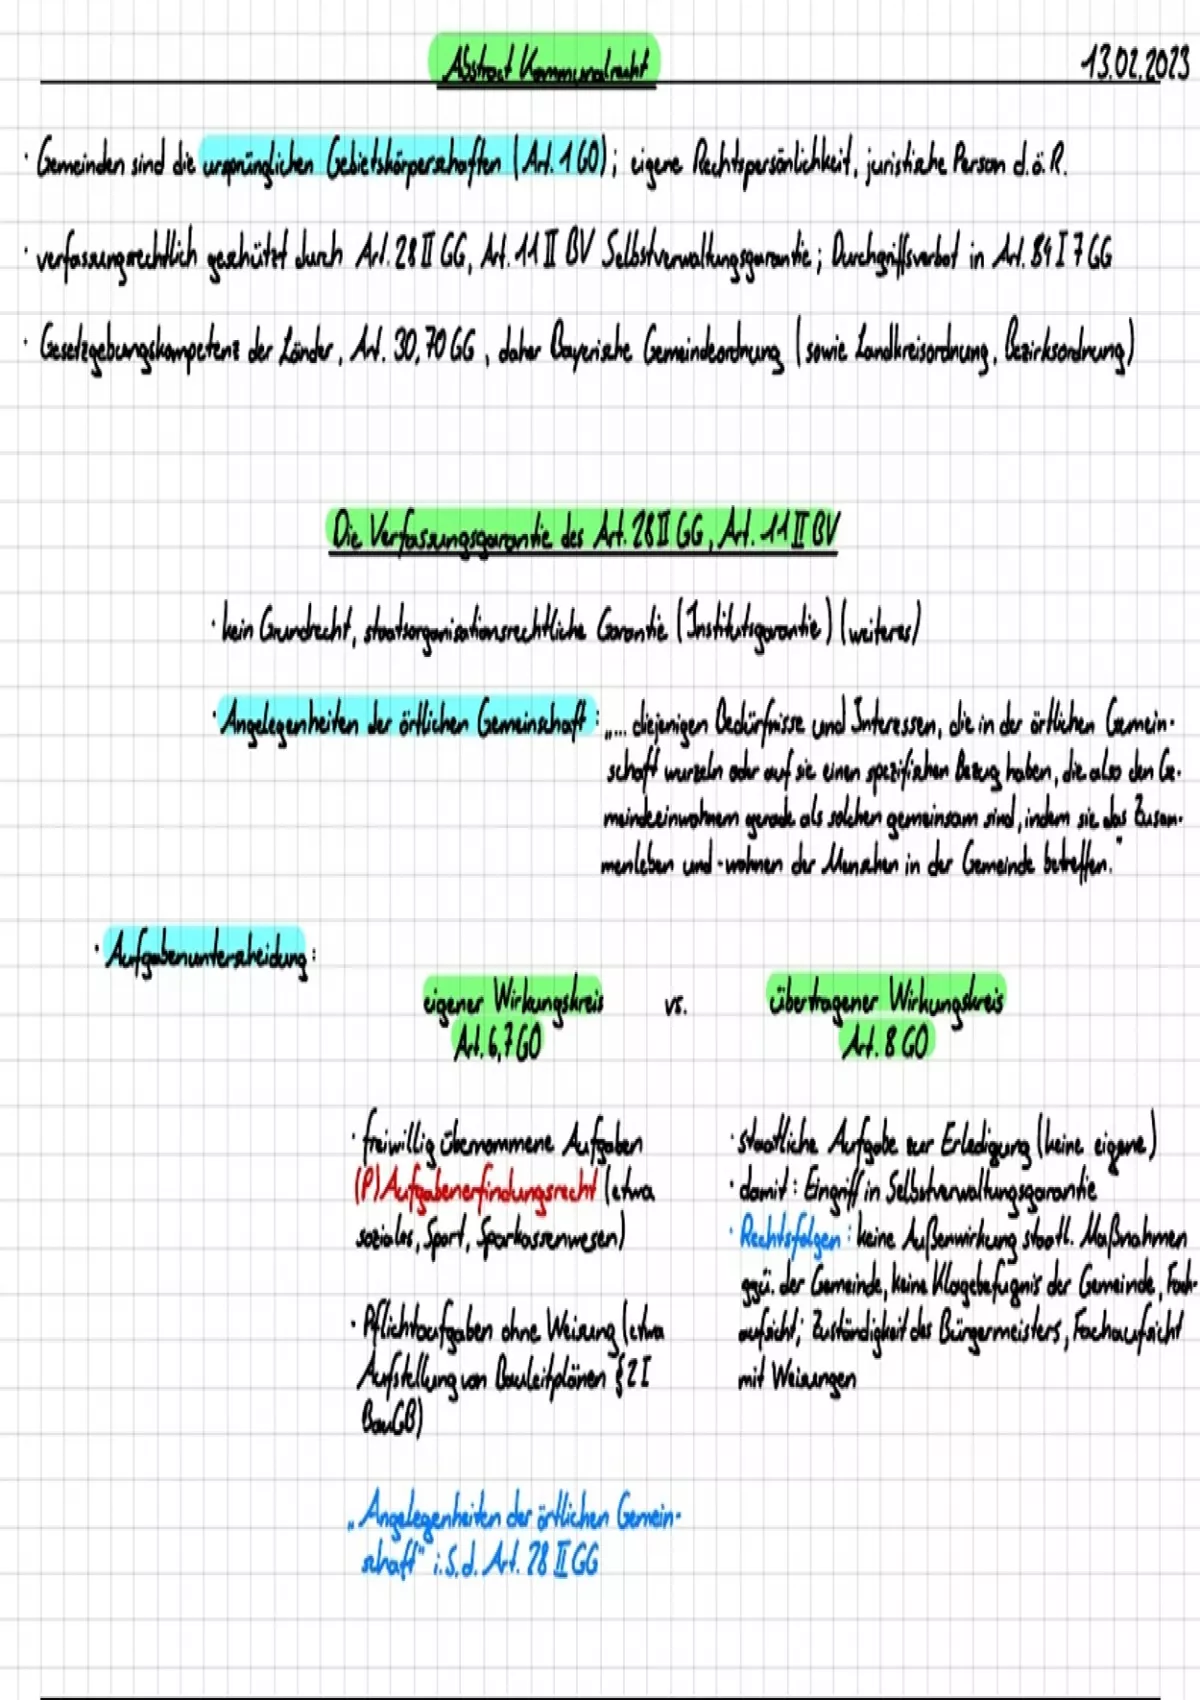 Abstract Kommunalrecht 13.02.2023
· Gemeinden sind die ursprünglichen Gebietskörperschaften (Art. 1 GO); eigene Rechtspersönlichkeit, juristische Person d.ö.R.
· verfassungsrechtlich geschützt durch Art. 28 II GG, Art. 11 II BV Selbstverwaltungsgarantie; Durchgriffsverbot in Art. 84 I 7 GG
· Gesetzgebungskompetenz der Länder, Art. 30, 70 GG, daher Bayerische Gemeindeordnung (sowie Landkreisordnung, Bezirksordnung)
Die Verfassungsgarantie des Art. 28 II GG, Art. 11 II BV
· kein Grundrecht, staatsorganisationsrechtliche Garantie (Institutsgarantie) (weiteres)
· Angelegenheiten der örtlichen Gemeinschaft: „... diejenigen Bedürfnisse und Interessen, die in der örtlichen Gemein-
schaft wurzeln oder auf sie einen spezifischen Bezug haben, die also den Ge-
meindeeinwohnern gerade als solchen gemeinsam sind, indem sie das Zusam-
menleben und -wohnen der Menschen in der Gemeinde betreffen."
· Aufgabenunterscheidung:
eigener Wirkungskreis vs. übertragener Wirkungskreis
Art. 6, 7 GO Art. 8 GO
· freiwillig übernommene Aufgaben
(P) Aufgabenerfindungsrecht (etwa
soziales, Sport, Sparkassenwesen)
· Pflichtaufgaben ohne Weisung (etwa
Aufstellung von Bauleitplänen § 2 I
BauGB)
„Angelegenheiten der örtlichen Gemein-
schaft" i.S.d. Art. 28 II GG
· staatliche Aufgabe zur Erledigung (keine eigene)
· damit: Eingriff in Selbstverwaltungsgarantie
· Rechtsfolgen: keine Außenwirkung staatl. Maßnahmen
ggü. der Gemeinde, keine Klagebefugnis der Gemeinde, Fach-
aufsicht; Zuständigkeit des Bürgermeisters, Fachaufsicht
mit Weisungen